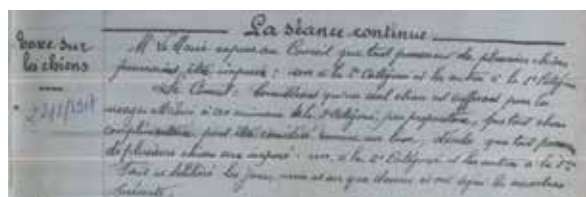 La séance continue
Taxe sur
les chiens
M. le Maire expose au Conseil que tout possesseur de plusieurs chiens
pourraient être imposés : un à la 2e Catégorie et les autres à la 1e Catégorie
Le Conseil, Considérant qu'un seul chien est suffisant pour la
que tout chien
complémentaire peut être considéré comme un luxe, décide que tout
de plusieurs chiens sera imposé : un, à la 2e Catégorie et les autres à la 1ère
Fait et délibéré les jour, mois et an que dessus et ont signé les membres
présents.